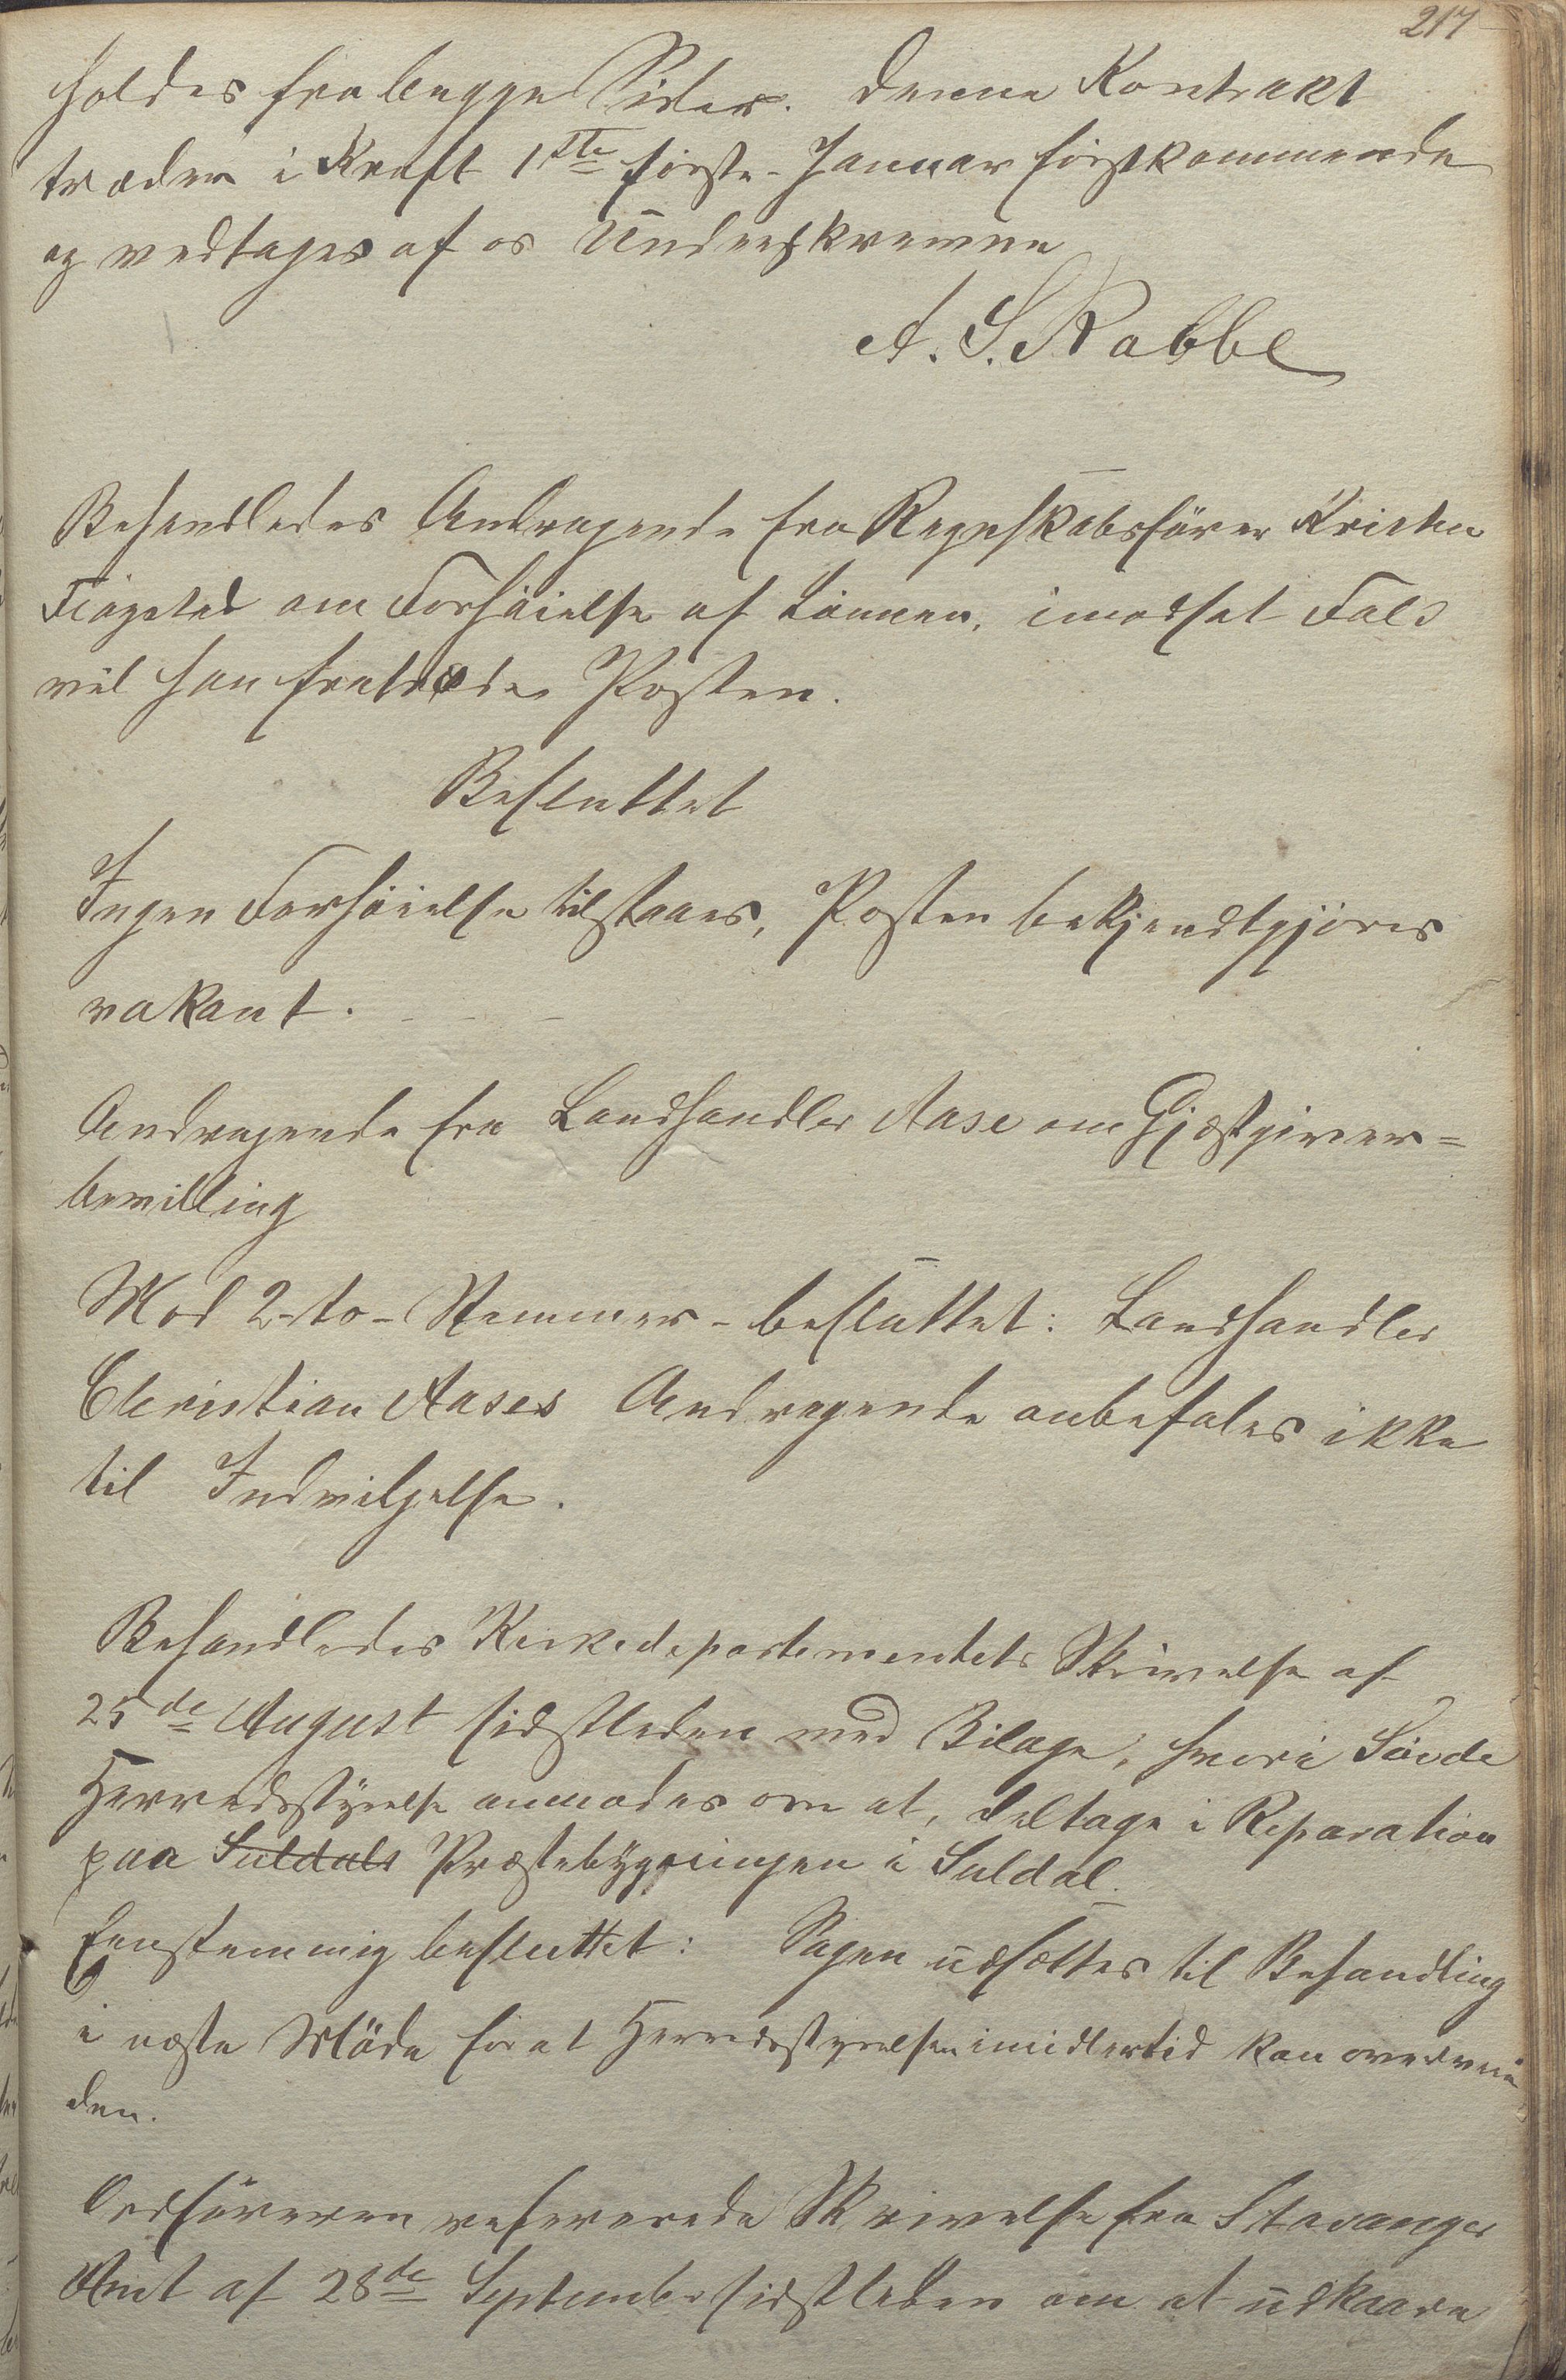 217
holdes fra begge Sider. Denne Kontrakt
træder i Kraft 1ste første Januar förstkommende
og vedtages af os Underskrevne
A. S. Rabbe
Behandledes Andragende fra Regnskabsfører Kristen
om Forhöielse af Lönnen, imodsat Fald
vil han fratræde Posten.
Besluttet
Ingen Forhöielse tilstaaes, Posten bekjendtgjöres
vakant.
Andragende fra Landhandler Aase om Gjæstgiver=
bevilling
Mod 2-to-Stemmer-besluttet: Landhandler
Christian Aases Andragende anbefales ikke
til Indvilgelse.
Behandledes Kirkedepartementets Skrivelse af
25de August sidstleden med Bilage, hvori Søvde
Herredsstyrelse anmodes om at, deltage i Reparation
paa Suldals Præstebygningen i Suldal.
Eenstemmig besluttet: Sagen udsættes til Behandling
i næste Möde for at Herredsstyrelsen imidlertid kan overveie
den.
Ordföreren refererede Skrivelse fra Stavanger
Amt af 28de September sidstleden om at udkaare